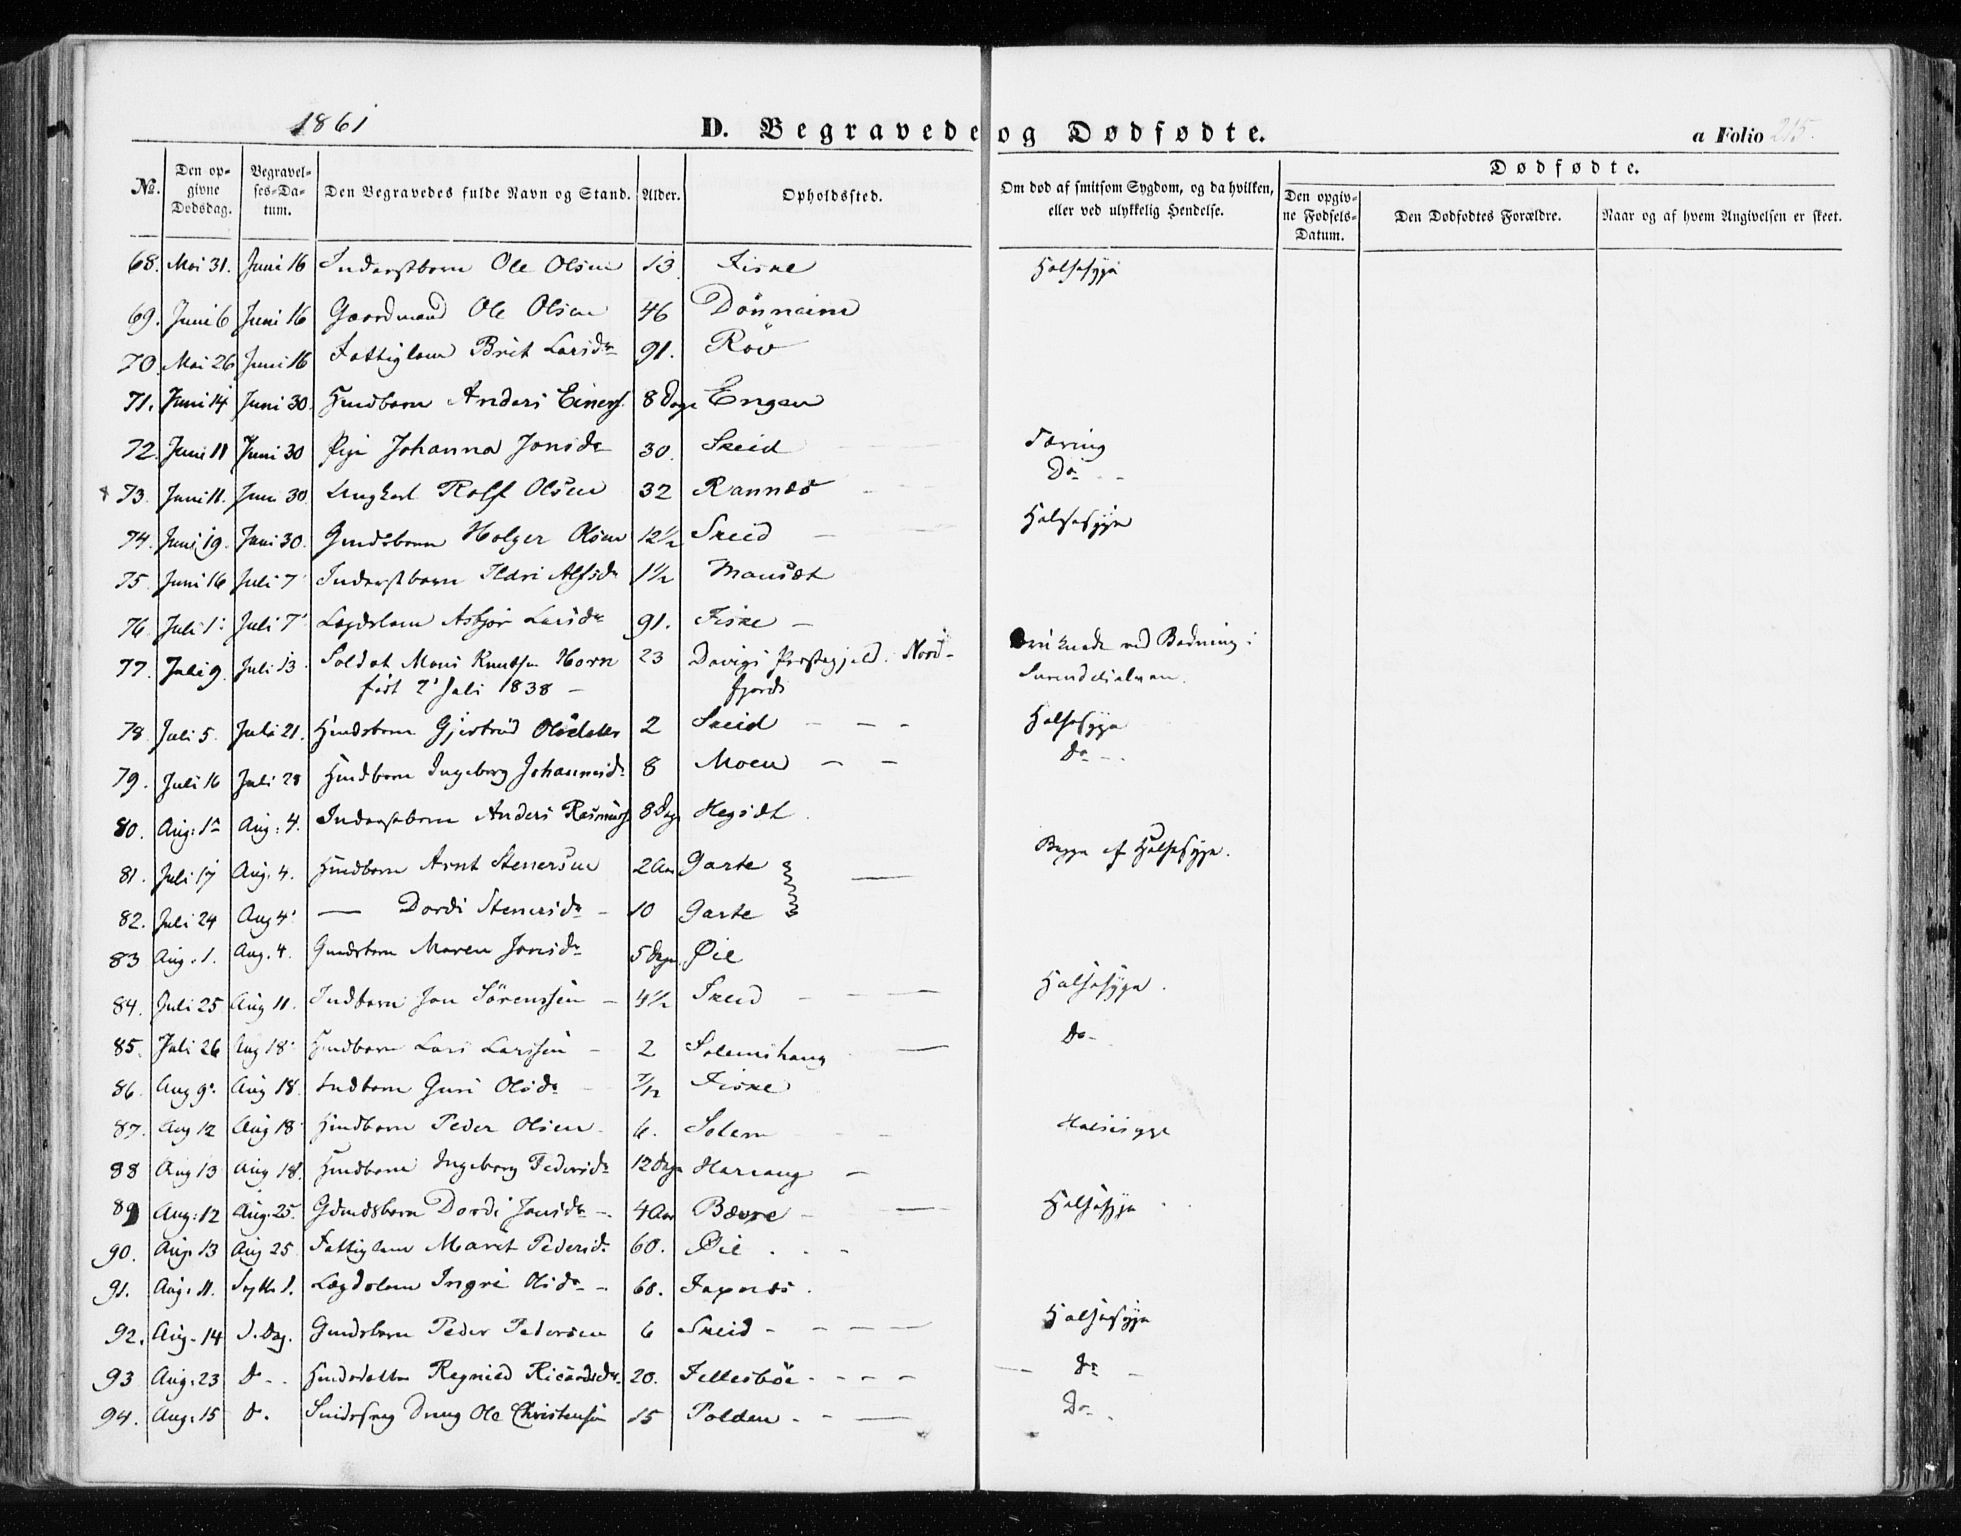 1861
D. Begravede og Dødfødte.
a Folio 215.
No. Den opgivne Dödsdag. Begravelses-Datum. Den Begravedes fulde Navn og Stand. Alder. Opholdssted. Om död af smitsom Sygdom, og da hvilken, eller ved ulykkelig Hendelse. Dødfødte. Den opgivne Födsels-Datum. Den Dödfödtes Forældre. Naar og af hvem Angivelsen er skeet.
68. Mai 31. Juni 16 Inderstbarn Ole Olsen 13 Fiske Halssyge
69. Juni 6 Juni 16 Gaardmand Ole Olsen 46 Dönneim
70. Mai 26 Juni 16 Fattiglem Brit Larsdr 91. Röv
71. Juni 14 Juni 30. Hmdbarn Anders Einers. 8 Dage Engan
72. Juni 11 Juni 30 Pige Johanna Jonsdr 30. Skeid Tæring
73. Juni 11. Juni 30 Ungkarl Rolf Olsen 32 Rannæs Do
74. Juni 19. Juni 30. Gmdsbarn Holger Olsen 12½ Skeid Halssyge
75. Juni 16 Juli 7 Inderstbarn Ildri Alfsdr 1½ Mausæt
76. Juli 1. Juli 7 Lægdslem Asbjör Larsdr 91. Fiske
77. Juli 9. Juli 13. Soldat Mons Knudsen Horn 23 Davigs Præstegjeld. Nord- druknede ved Badning i
födt 2 Juli 1838 fjord Surendalselven.
78. Juli 5. Juli 21. Hmdsbarn Gjertrud Olsdatter 2 Skeid Halssyge
79. Juli 16 Juli 28 Hmdbarn Ingeborg Johannesdr 8 Moen Do
80. Aug: 1 Aug: 4. Inderstbarn Anders Rasmuss. 8 Dage Megsdt
81. Juli 17 Aug. 4. Hmdbarn Arnt Stenersen 2 Aar Garte Begge af Halssyge.
82. Juli 24 Aug 4 — Dordi Stenersdr 10 Garte
83 Aug. 1. Aug. 4. Gmdsbarn Maren Jonsdr 5 Dage Øie
84. Juli 25 Aug 11. Indbarn Jon Sörenssen 4½ Skeid Halssyge.
85. Juli 26 Aug 18 Hmdbarn Lars Larssen 2 Solemshaug Do
86. Aug 9. Aug 18. Indbarn Guri Olsdr 7/12 Fiske
87. Aug 12 Aug 18 Hmdbarn Peder Olsen 6. Solem Halssyge
88 Aug 13 Aug 18. Hmdbarn Ingeborg Pedersdr 12 Dage Harang
89 Aug: 12 Aug. 25. Gmdsbarn Dordi Jonsdr 4 Aar Bævre Halssyge
90. Aug. 13 Aug 25 Fattiglem Marit Pedersdr 60. Øie
91. Aug. 11. Septb. 1. Lægdslem Ingri Olsdr 60. Faxnæs
92. Aug. 14 S. Dag. Gmdsbarn Peder Pedersen 6 Skeid Halssyge
93 Aug. 23 Do Hmdsdatter Regnild Ricardsdr 20. Tellesböe Do
94. Aug. 15 Do Ole Christensen 15 Polden Do